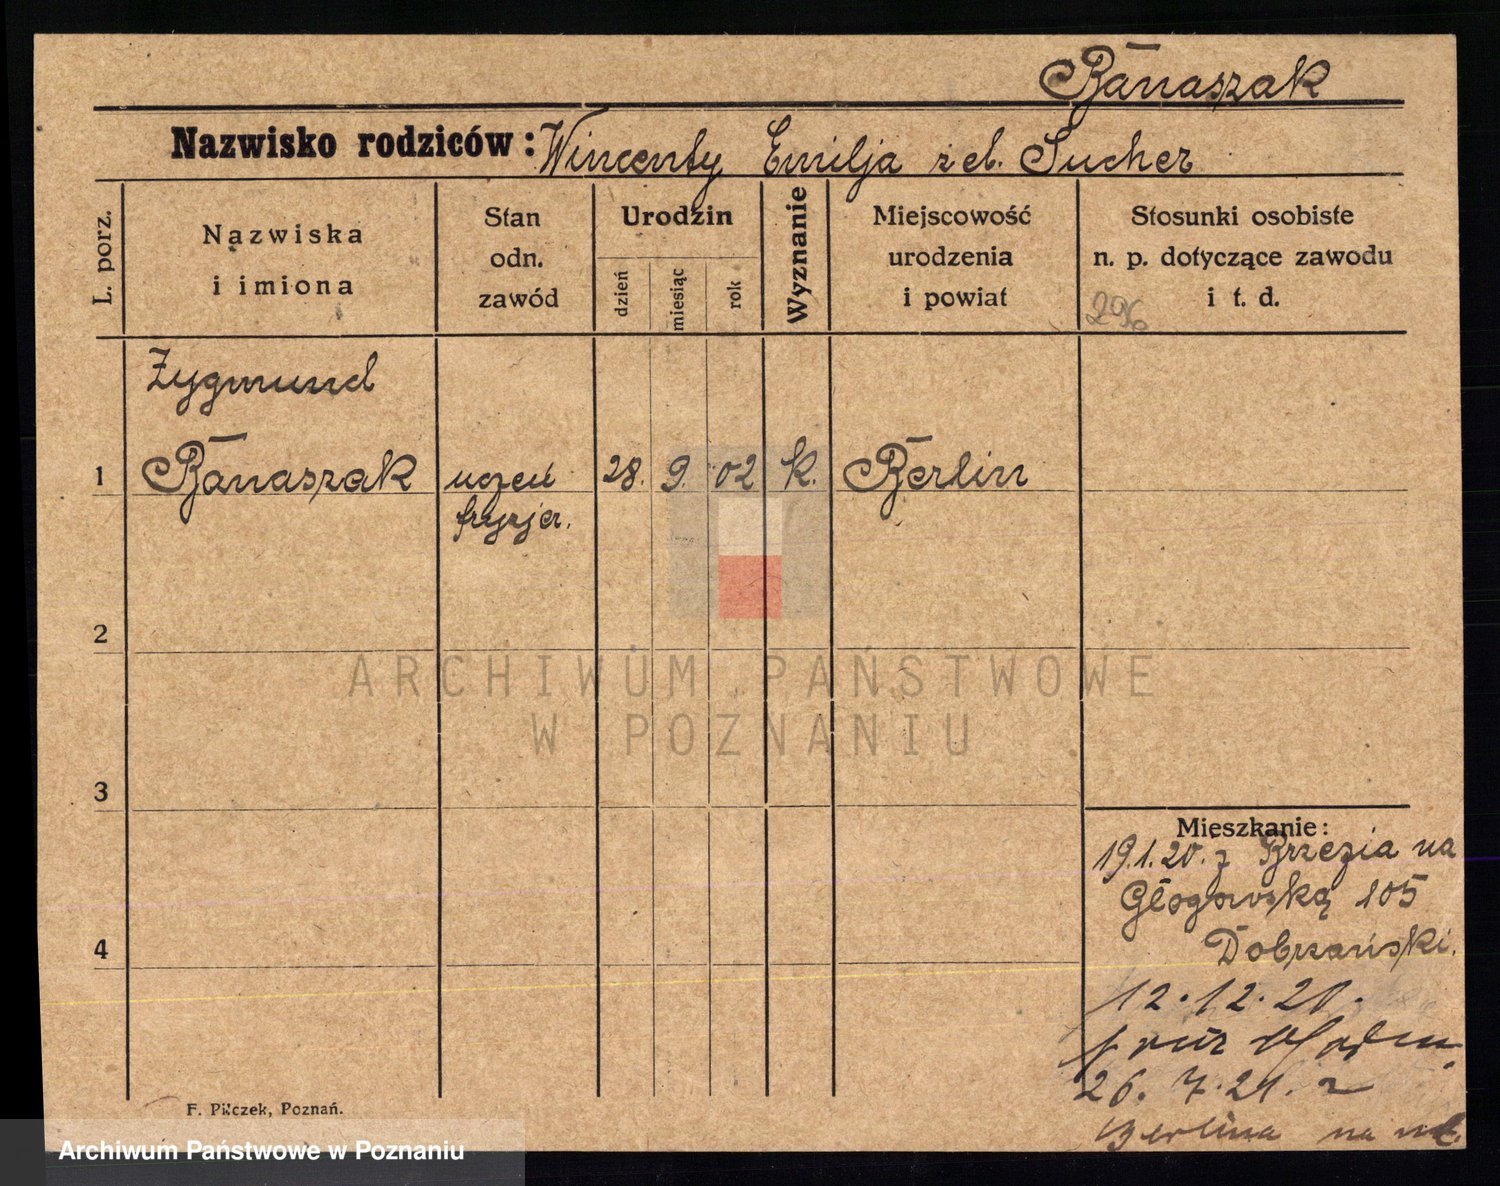 Banaszak
Nazwisko rodziców: Wincenty Emilja z d. Sucher
L. porz.
Nazwiska
i imiona
Stan
odn.
zawód
Urodzin
dzień
miesiąc
rok
Wyznanie
Miejscowość
urodzenia
i powiat
Stosunki osobiste
n. p. dotyczące zawodu
i t. d.
296
Zygmund
1 Banaszak uczeń 28. 9. 02 k. Berlin
fryzjer.
2
ARCHIWUM PAŃSTWOWE
W POZNANIU
3
Mieszkanie:
19.1.20. z Brzezia na
Głogowską 105
4
Dobrzański.
12.12.20.
26. 7. 21. z
Berlina na
F. Pilczek, Poznań.
Archiwum Państwowe w Poznaniu